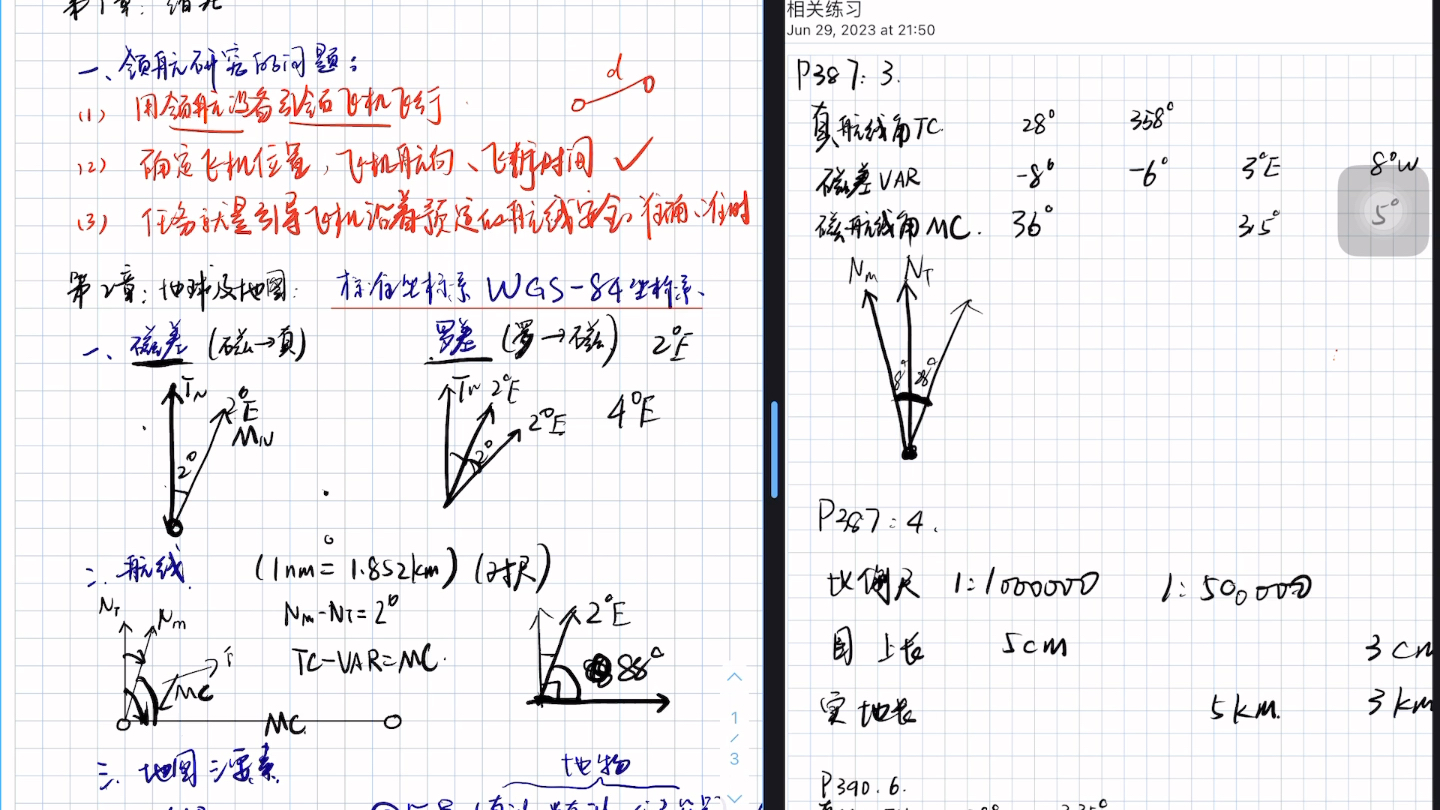 第1章：绪论
一、领航研究的问题：
(1) 用领航设备引领飞机飞行
d
(2) 确定飞机位置，飞机航向、飞行时间 ✓
(3) 任务就是引导飞机沿着预定的航线安全、准确、准时
第2章：地球及地图： 标准坐标系 WGS-84坐标系、
一、磁差 (磁→真) 罗差 (罗→磁) 2°E
TN 2°E MN 2°
TN 2°E 2°E 2° 4°E
二、航线 (1nm = 1.852km) (对尺)
NT Nm Nm-NT=2° 2°E
TC-VAR=MC. 88°
MC
MC
三、地图三要素 地物
1
/
3
相关练习
Jun 29, 2023 at 21:50
P387: 3.
真航线角TC. 28° 358°
磁差VAR -8° -6° 3°E 8°W
5°
磁航线角MC. 36° 35°
Nm NT
8° 28°
P387: 4.
比例尺 1:1000000 1:500000
图上长 5cm 3cm
实地长 5km. 3km
P390.6.